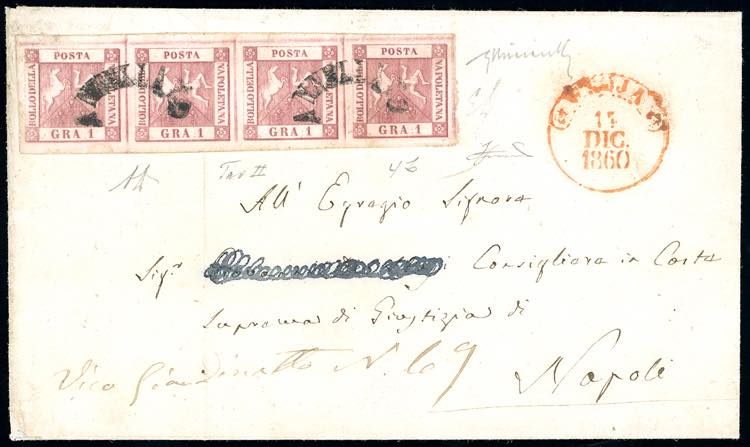 POSTA POSTA POSTA POSTA
BOLLO DELLA NAPOLETANA BOLLO DELLA NAPOLETANA BOLLO DELLA NAPOLETANA BOLLO DELLA NAPOLETANA
GRA 1 GRA 1 GRA 1 GRA 1
17
DIC.
1860
Tav II
All' Egregio Signore
Sigr Consigliere in Corte
Suprema di Giustizia di
Vico N. 69 Napoli